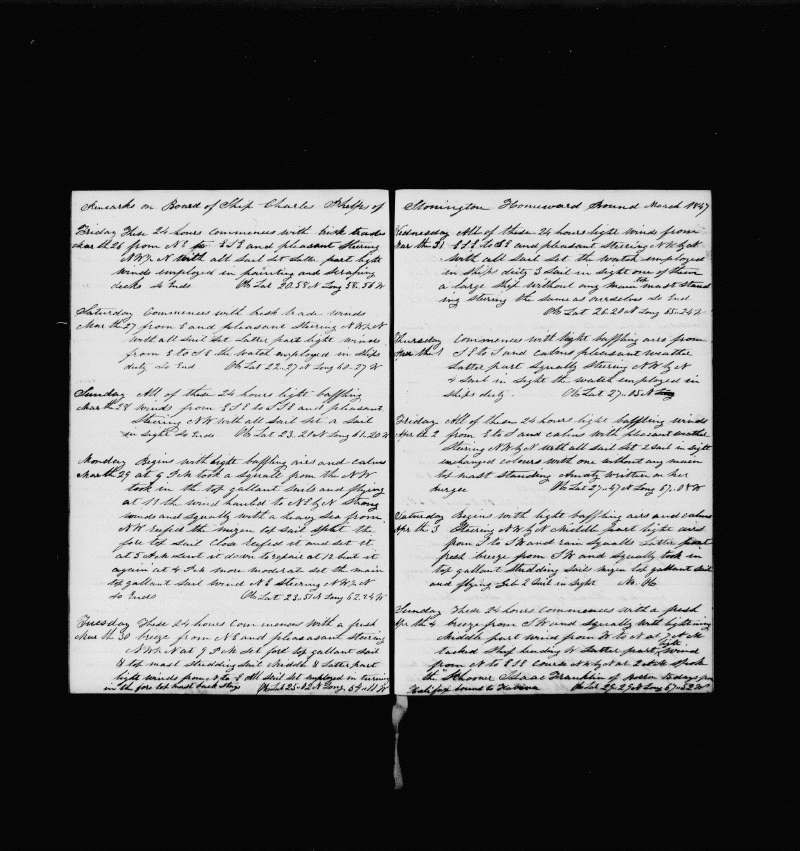 Remarks on Board of Ship Charles Phelps of
Friday These 24 hours commences with brisk trades
Mar th 26 from NE to ESE and pleasant Stering
NW by N with all Sail Set Latter part light
winds employed in painting and scraping
decks So Ends Ob Lat 20.58 N Long 58.56 W
Saturday Commences with fresh trade winds
Mar th 27 from E and pleasant Stering NW by N
with all Sail Set Latter part light winds
from E to SE the watch employed in ships
duty So End Ob Lat 22-27 N Long 60-27 W
Sunday All of these 24 hours light baffling
Mar th 28 winds from ESE to SSE and pleasant
Stering NW with all Sail Set a Sail
in Sight So Ends Ob Lat 23.21 N Long 61.20 W
Monday Begins with light baffling airs and calms
Mar th 29 at 9 P.M took a squall from the NW
took in the top gallant Sails and flying
at 11 the wind hauled to NE by N Strong
winds and Squally with a heavy Sea from
NW reefed the mizen top Sail Split the
fore top Sail Close reefed it and Set it
at 5 A.M Sent it down to repair at 12 bent it
again at 4 P.M more moderat Set the main
top gallant Sail wind NE Stering NW by N
So Ends Ob Lat 23.51 N Long 62.24 W
Tuesday These 24 hours Commences with a fresh
Mar th 30 breeze from NE and pleasasant Stering
NW by N at 9 P.M Set fore top gallant Sail
& top mast Studding Sail Middle & Latter part
light winds from N to E All Sail Set employed in turning
in the fore top mast back Stays Ob Lat 25-02 N Long 64-11 W
Stonington Homeward Bound March 1847
Wednesday All of these 24 hours light winds from
Mar th 31 ESE to SE and pleasant Stering NW by N
with all Sail Set the Watch employed
in Ships duty 3 Sail in Sight one of them
a large Ship without any main top mast Stand
ing stering the same as ourselves So End
Ob Lat 26.21 N Long 65-24 W
Thursday Commences with light baffling airs from
Apr th 1 SE to S and calms pleasant weather
Latter part Squally Stering NW by N
4 Sail in Sight the watch employed in
Ships duty Ob Lat 27.-15 N Long
Friday All of these 24 hours light baffling winds
Apr th 2 from E to S and calms with pleasant weather
Stering NW by N with all Sail Set 2 Sail in Sight
exchanged colours with one without any main
top mast Standing written on her
Ob Lat 27-47 N Long 67.08 W
Saturday Begins with light baffling airs and calms
Apr th 3 Stering NW by N Middle part light airs
from S to SW and rain Squalls Latter part
fresh breeze from SW and Squally took in
top gallant Studding Sail mizen top gallant Sail
and flying Jib 2 Sail in Sight No. Ob
Sunday These 24 hours Commences with a fresh
Apr th 4 breeze from SW and Squally with lightning
Middle part wind from W to N at 7 A.M
tacked Ship heading W Latter part light winds
from N to ESE Course NW by N at 2 P.M Spoke
the Schooner Isaac Franklin of Boston 10 days from
Halifax bound to Havana Ob Lat 29.29 N Long 67-52 W